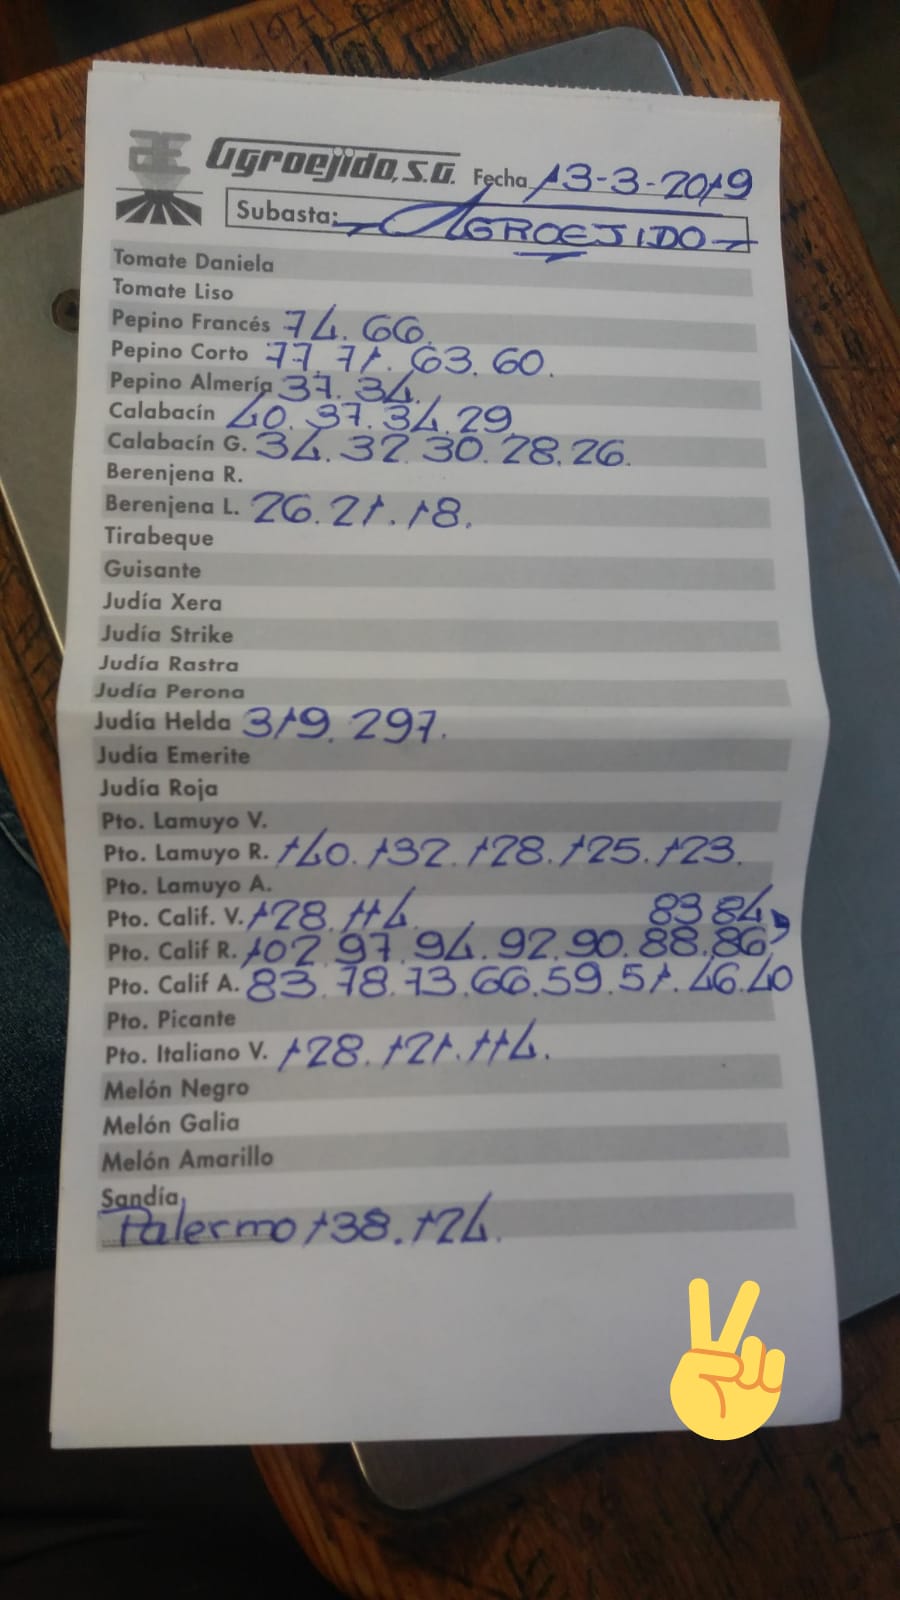 Agroejido, S.A. Fecha 13-3-2019
Subasta: AGROEJIDO
Tomate Daniela
Tomate Liso
Pepino Francés 74. 66.
Pepino Corto 77. 71. 63. 60.
Pepino Almería 37. 34.
Calabacín 40. 37. 34. 29
Calabacín G. 34. 32. 30. 28. 26.
Berenjena R.
Berenjena L. 26. 21. 18.
Tirabeque
Guisante
Judía Xera
Judía Strike
Judía Rastra
Judía Perona
Judía Helda 319. 297.
Judía Emerite
Judía Roja
Pto. Lamuyo V.
Pto. Lamuyo R. 140. 132. 128. 125. 123.
Pto. Lamuyo A.
Pto. Calif. V. 128. 114.
83 84
Pto. Calif R. 102. 97. 94. 92. 90. 88. 86
Pto. Calif A. 83. 78. 73. 66. 59. 51. 46. 40
Pto. Picante
Pto. Italiano V. 128. 121. 114.
Melón Negro
Melón Galia
Melón Amarillo
Sandía
Palermo 138. 124.